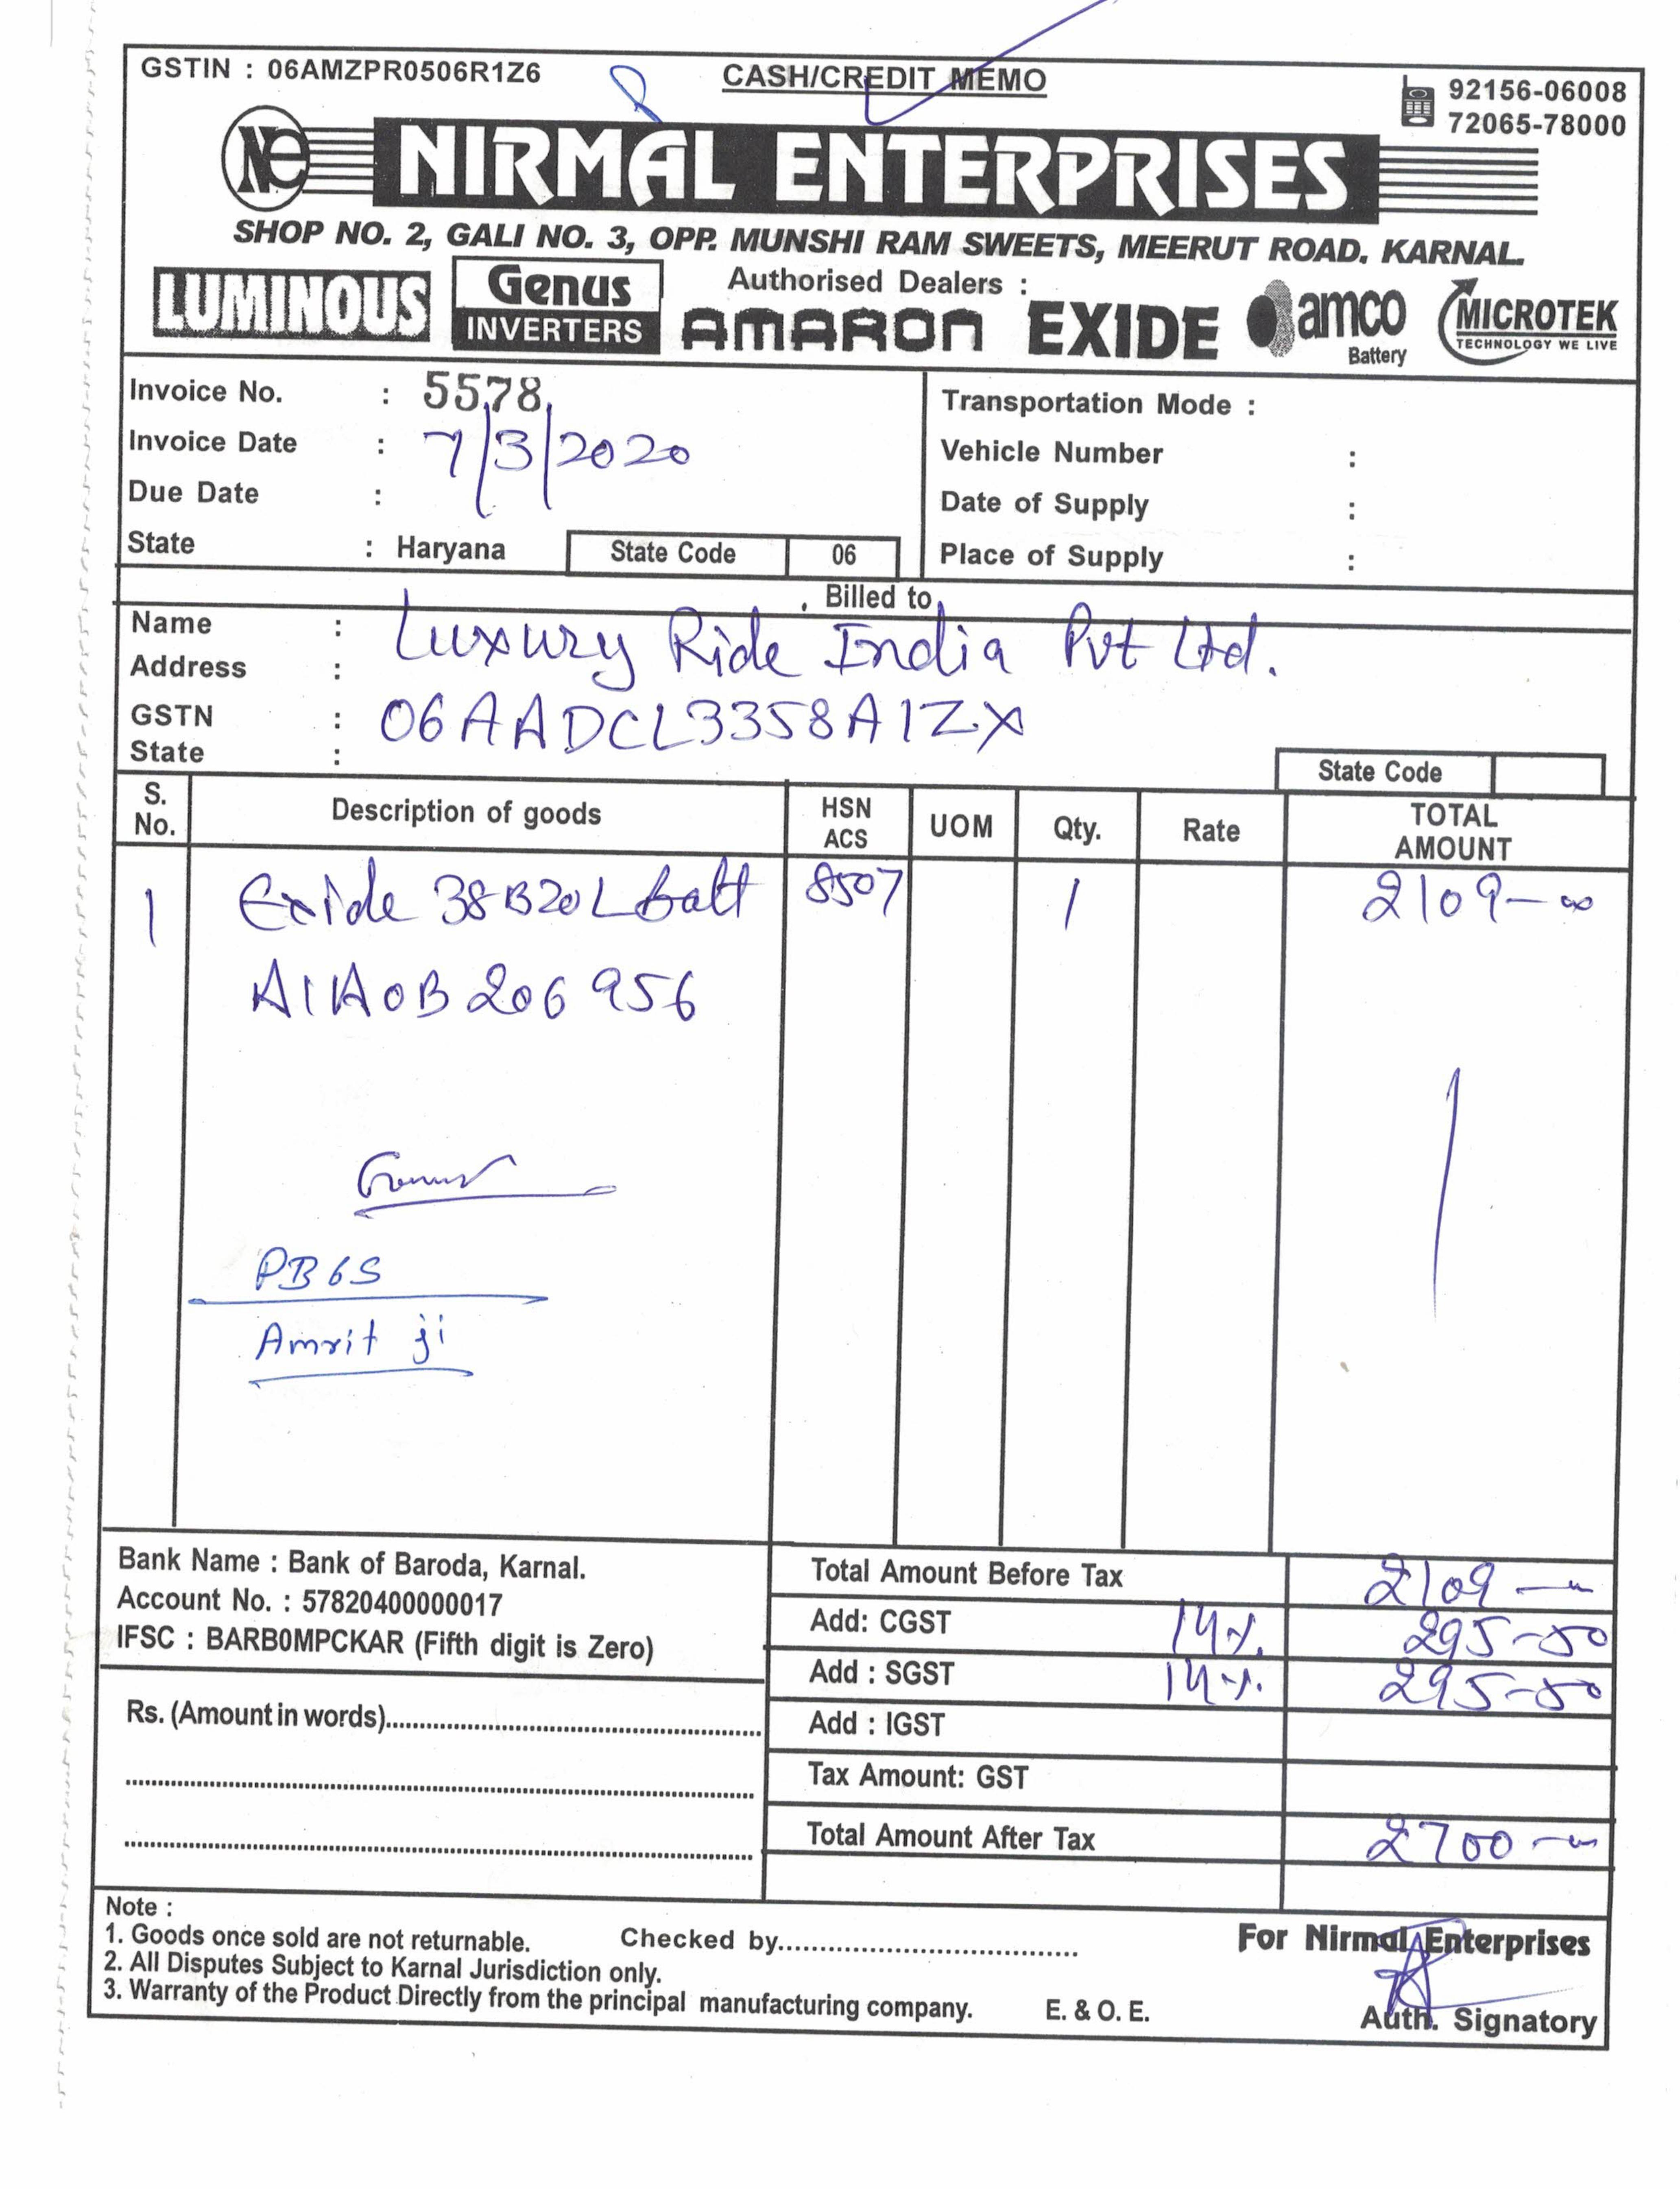 GSTIN : 06AMZPR0506R1Z6
CASH/CREDIT MEMO
92156-06008
72065-78000
Ne NIRMAL ENTERPRISES
SHOP NO. 2, GALI NO. 3, OPP. MUNSHI RAM SWEETS, MEERUT ROAD. KARNAL.
Authorised Dealers :
LUMINOUS Genus INVERTERS AMARON EXIDE amco Battery MICROTEK TECHNOLOGY WE LIVE
Invoice No. : 5578
Invoice Date : 7/3/2020
Due Date :
State : Haryana State Code 06
Transportation Mode :
Vehicle Number :
Date of Supply :
Place of Supply :
Billed to
Name : Luxury Ride India Pvt Ltd.
Address :
GSTN : 06AADCL3358A1ZX
State :
State Code
S. No. Description of goods HSN ACS UOM Qty. Rate TOTAL AMOUNT
1 Exide 38B20L Batt 8507 1 2109-00
A1A0B206956
PB65
Amrit ji
Bank Name : Bank of Baroda, Karnal.
Account No. : 57820400000017
IFSC : BARB0MPCKAR (Fifth digit is Zero)
Rs. (Amount in words)
Total Amount Before Tax 2109-00
Add: CGST 14% 295-50
Add : SGST 14% 295-50
Add : IGST
Tax Amount: GST
Total Amount After Tax 2700-00
Note :
1. Goods once sold are not returnable.
2. All Disputes Subject to Karnal Jurisdiction only.
3. Warranty of the Product Directly from the principal manufacturing company.
Checked by
E. & O. E.
For Nirmal Enterprises
Auth. Signatory